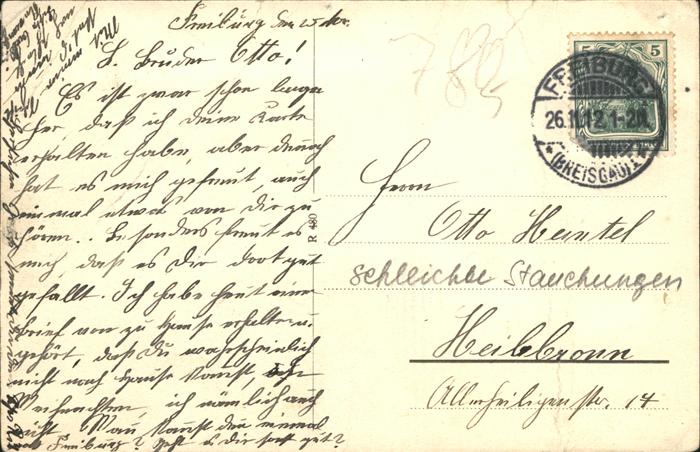 Freiburg den 25 Nov.
L. Bruder Otto!
Es ist zwar schon lange
her, daß ich deine Karte
erhalten habe, aber dennoch
hat es mich gefreut, auch
einmal etwas von Dir zu
hören.. Besonders freut es
mich, daß es Dir dort gut
gefällt. Ich habe heut einen
Brief von zu Hause erhalten u.
gehört, daß Du wahrscheinlich
nicht nach Hause kommst,
Weihnachten, ich nämlich auch
nicht. Wann kommst Du einmal
nach Freiburg? Geht es Dir sonst gut?
R 480
785
5 5
FREIBURG
26.11.12.1-2N.
*(BREISGAU)1*
Herrn
Otto Hentel
schleichte Stauchungen
Heilbronn
Allerheiligenstr. 14